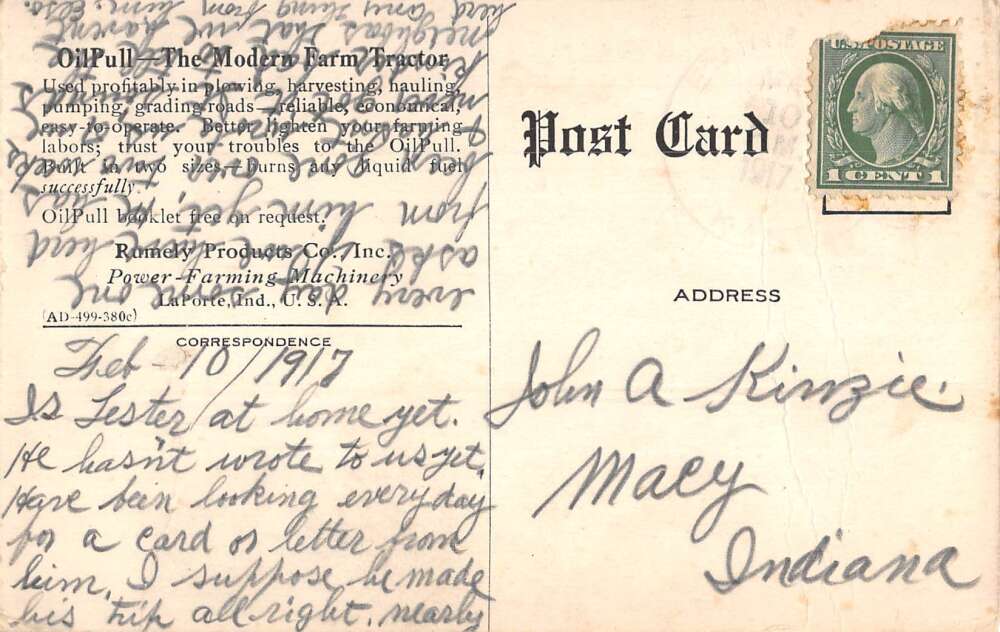 OilPull—The Modern Farm Tractor
Used profitably in plowing, harvesting, hauling,
pumping, grading roads—reliable, economical,
easy-to-operate. Better lighten your farming
labors; trust your troubles to the OilPull.
Built in two sizes—burns any liquid fuel
successfully.
OilPull booklet free on request.
Rumely Products Co., Inc.
Power-Farming Machinery
LaPorte, Ind., U. S. A.
(AD-499-380c)
CORRESPONDENCE
Feb - 10/1917
Is Lester at home yet.
He hasn't wrote to us yet.
Have been looking every day
for a card or letter from
him. I suppose he made
his trip all right. nearly
every day some one
asks if we have herd
from him yet, he has
neighbors that we havent
herd any thing from him. Elsa.
Post Card
U.S. POSTAGE
1 CENT 1
1917
ADDRESS
John A Kinzie.
Macy
Indiana